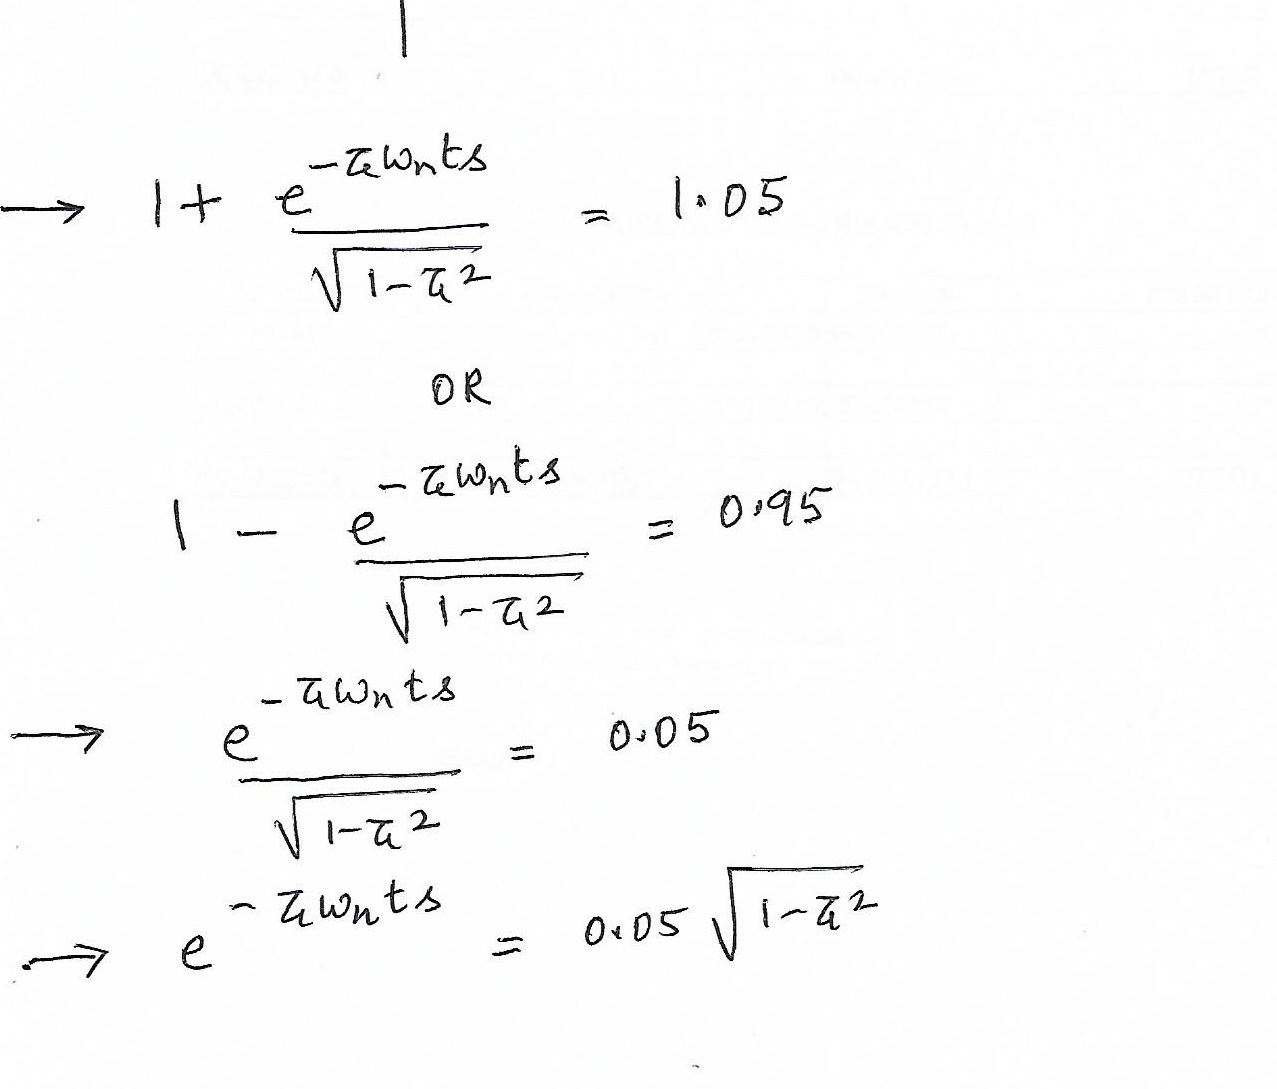 → 1 + e^(-ξωnts) / √(1-ξ²) = 1.05
OR
1 - e^(-ξωnts) / √(1-ξ²) = 0.95
→ e^(-ξωnts) / √(1-ξ²) = 0.05
→ e^(-ξωnts) = 0.05 √(1-ξ²)